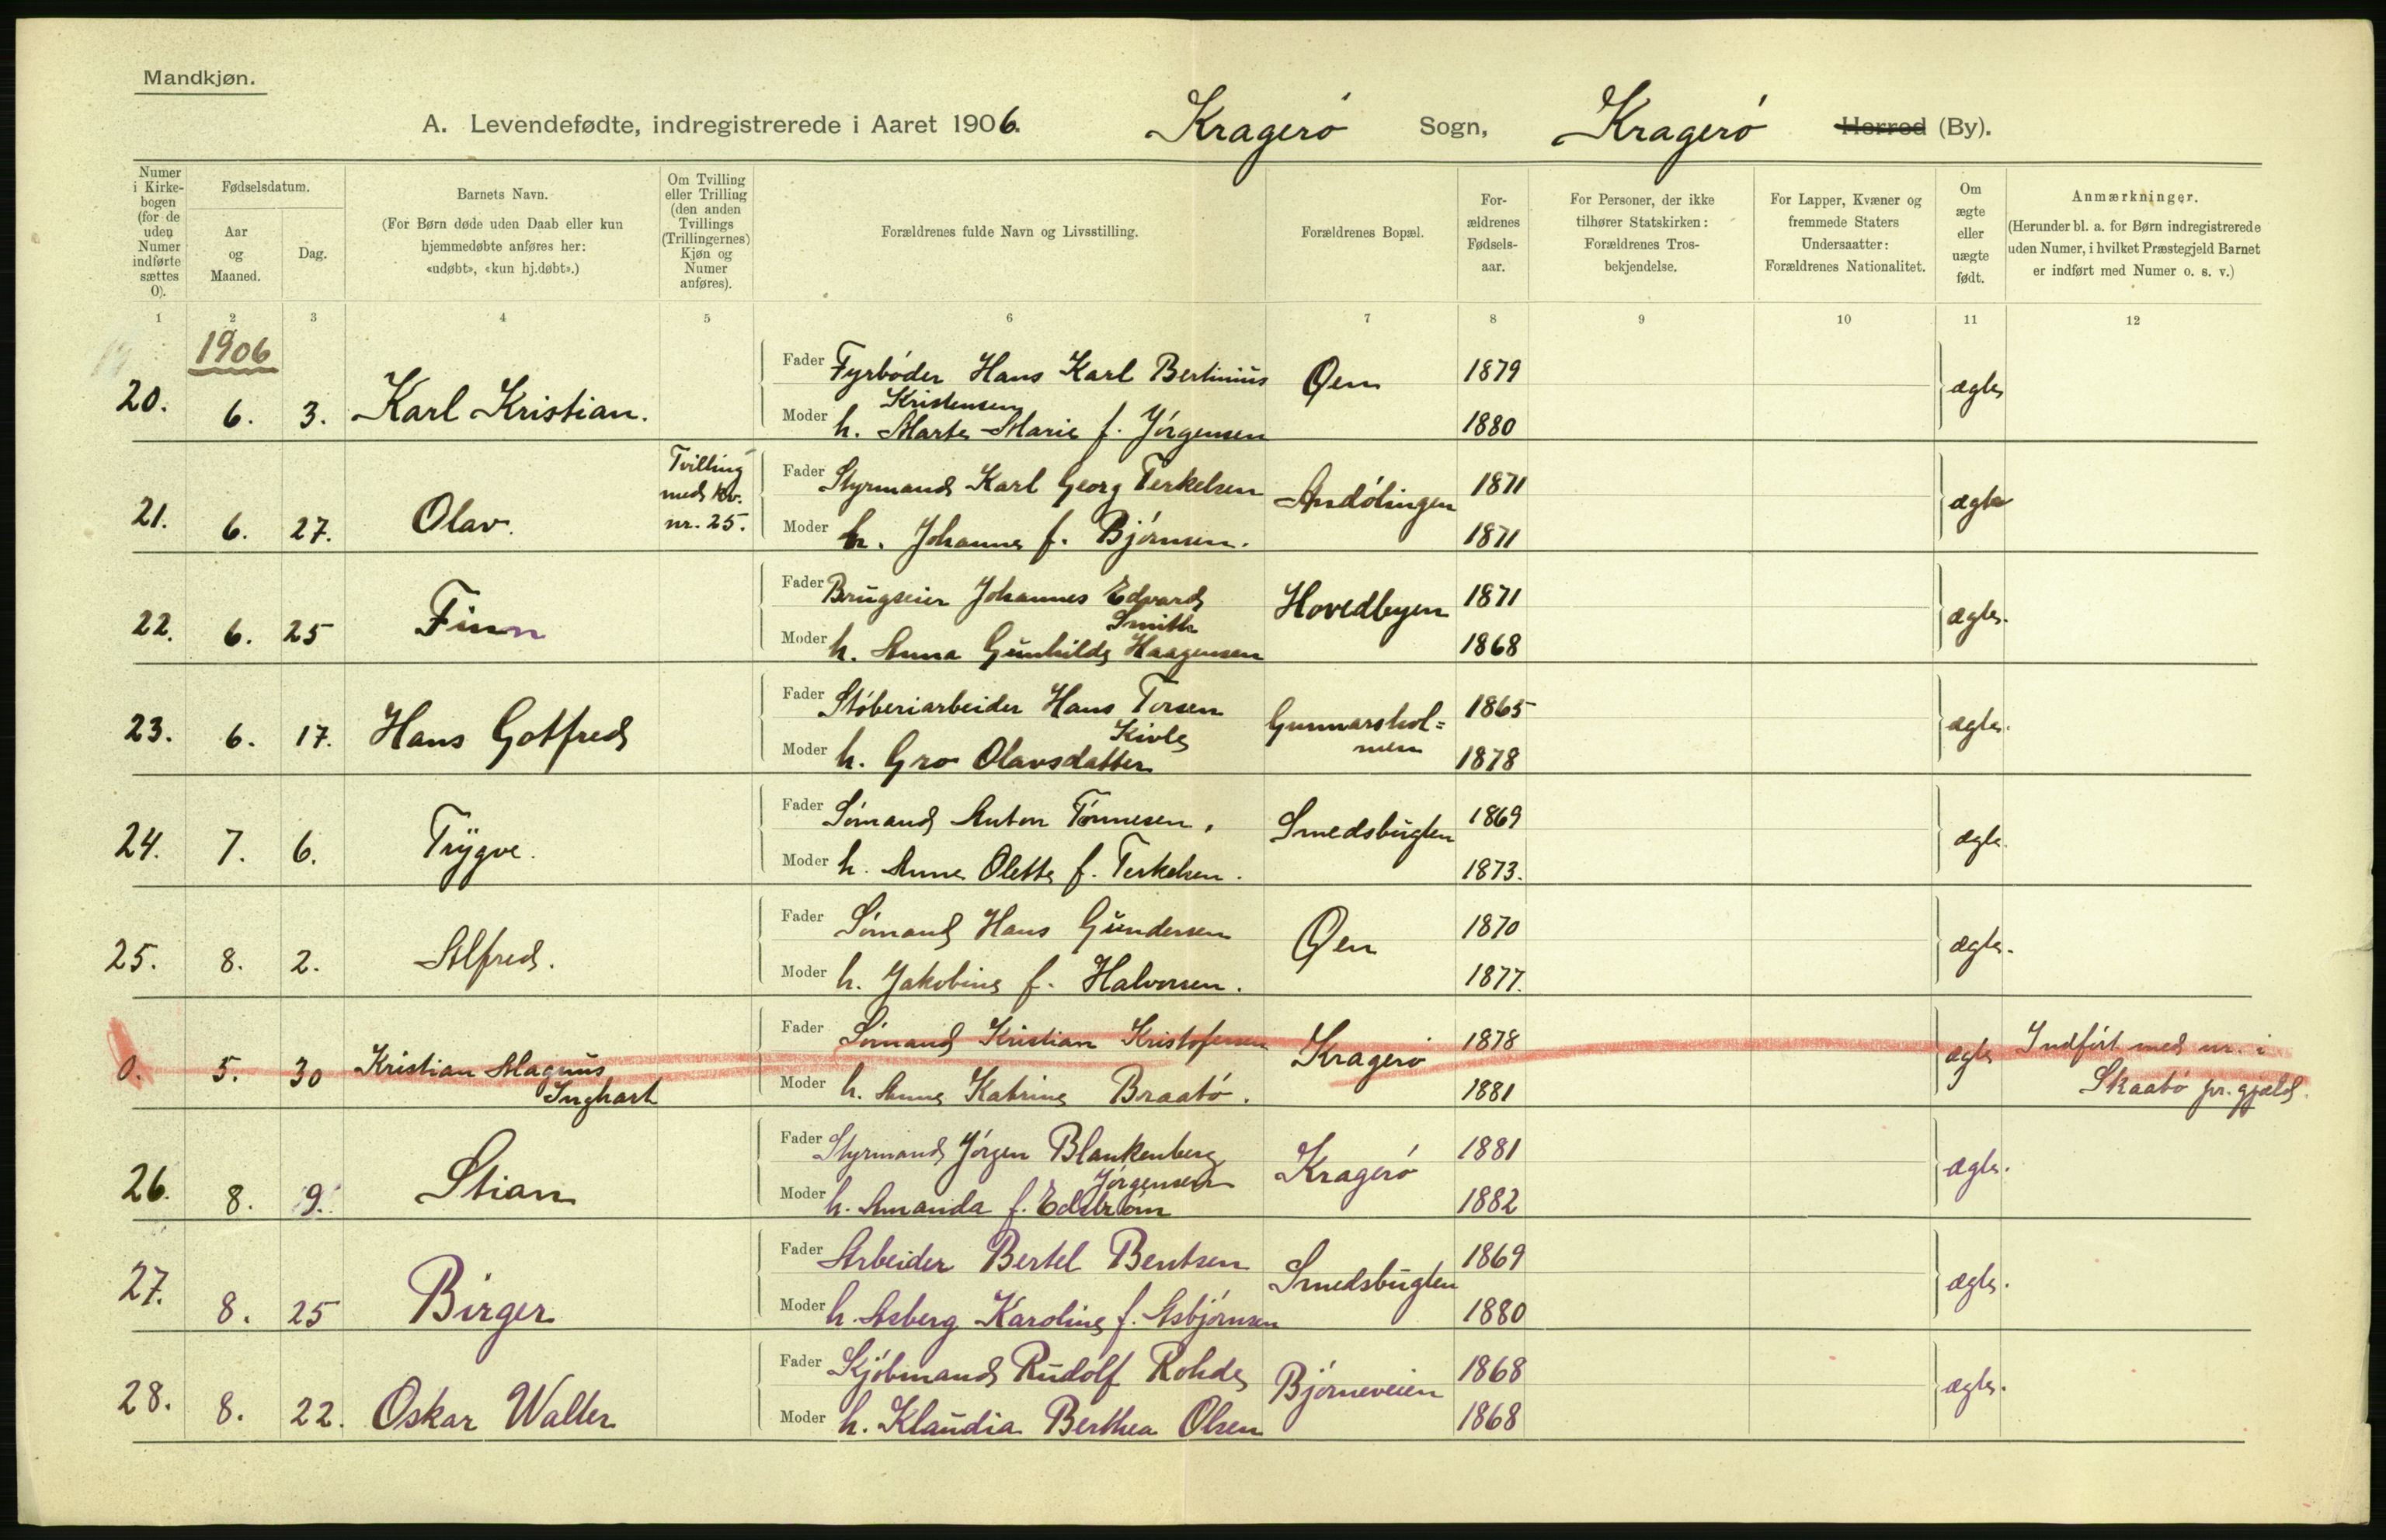 Mandkjøn.
A. Levendefødte, indregistrerede i Aaret 1906. Kragerø Sogn, Kragerø Herred (By).
Numer i Kirkebogen (for de uden Numer indførte sættes 0).
Fødselsdatum.
Aar og Maaned.
Dag.
Barnets Navn.
(For Børn døde uden Daab eller kun hjemmedøbte anføres her: «udøbt», «kun hj.døbt».)
Om Tvilling eller Trilling (den anden Tvillings (Trillingernes) Kjøn og Numer anføres).
Forældrenes fulde Navn og Livsstilling.
Forældrenes Bopæl.
Forældrenes Fødselsaar.
For Personer, der ikke tilhører Statskirken: Forældrenes Trosbekjendelse.
For Lapper, Kvæner og fremmede Staters Undersaatter: Forældrenes Nationalitet.
Om ægte eller uægte født.
Anmærkninger.
(Herunder bl. a. for Børn indregistrerede uden Numer, i hvilket Præstegjeld Barnet er indført med Numer o. s. v.)
1 2 3 4 5 6 7 8 9 10 11 12
1906
20. 6. 3. Karl Kristian. Fader Fyrbøder Hans Karl Bertinius Kristensen Øen 1879 ægte
Moder h. Marte Marie f. Jørgensen 1880
21. 6. 27. Olav. Tvilling med kv. nr. 25. Fader Styrmand Karl Georg Terkelsen Andølingen 1871 ægte
Moder h. Johanne f. Bjørnsen. 1871
22. 6. 25 Finn Fader Brugseier Johannes Edvard Smith Hovedbyen 1871 ægte.
Moder h. Anna Gunhilde Haagensen 1868
23. 6. 17. Hans Gotfred Fader Støberiarbeider Hans Torsen Kivle Gunnarshol=men 1865 ægte.
Moder h. Gro Olavsdatter 1878
24. 7. 6. Trygve. Fader Sømand Anton Tønnesen. Smedsbugten 1869 ægte.
Moder h. Anne Olette f. Terkelsen. 1873.
25. 8. 2. Alfred. Fader Sømand Hans Gundersen Øen 1870 ægte.
Moder h. Jakobine f. Halvorsen. 1877.
0. 5. 30 Kristian Magnus Inghart Fader Sømand Kristian Kristofersen Kragerø 1878 ægte Indført med nr. i Skaatø pr.gjæld.
Moder h. Anne Katrine Braatø. 1881
26. 8. 9. Stian Fader Styrmand Jørgen Blankenberg Jørgensen Kragerø 1881 ægte.
Moder h. Amanda f. Edstrøm 1882
27. 8. 25 Birger Fader Arbeider Bertel Bentsen Smedsbugten 1869 ægte.
Moder h. Asberg Karoline f. Asbjørnsen 1880
28. 8. 22. Oskar Walter Fader Kjøbmand Rudolf Rohde Bjørneveien 1868 ægte.
Moder h. Klaudia Berthea Olsen 1868